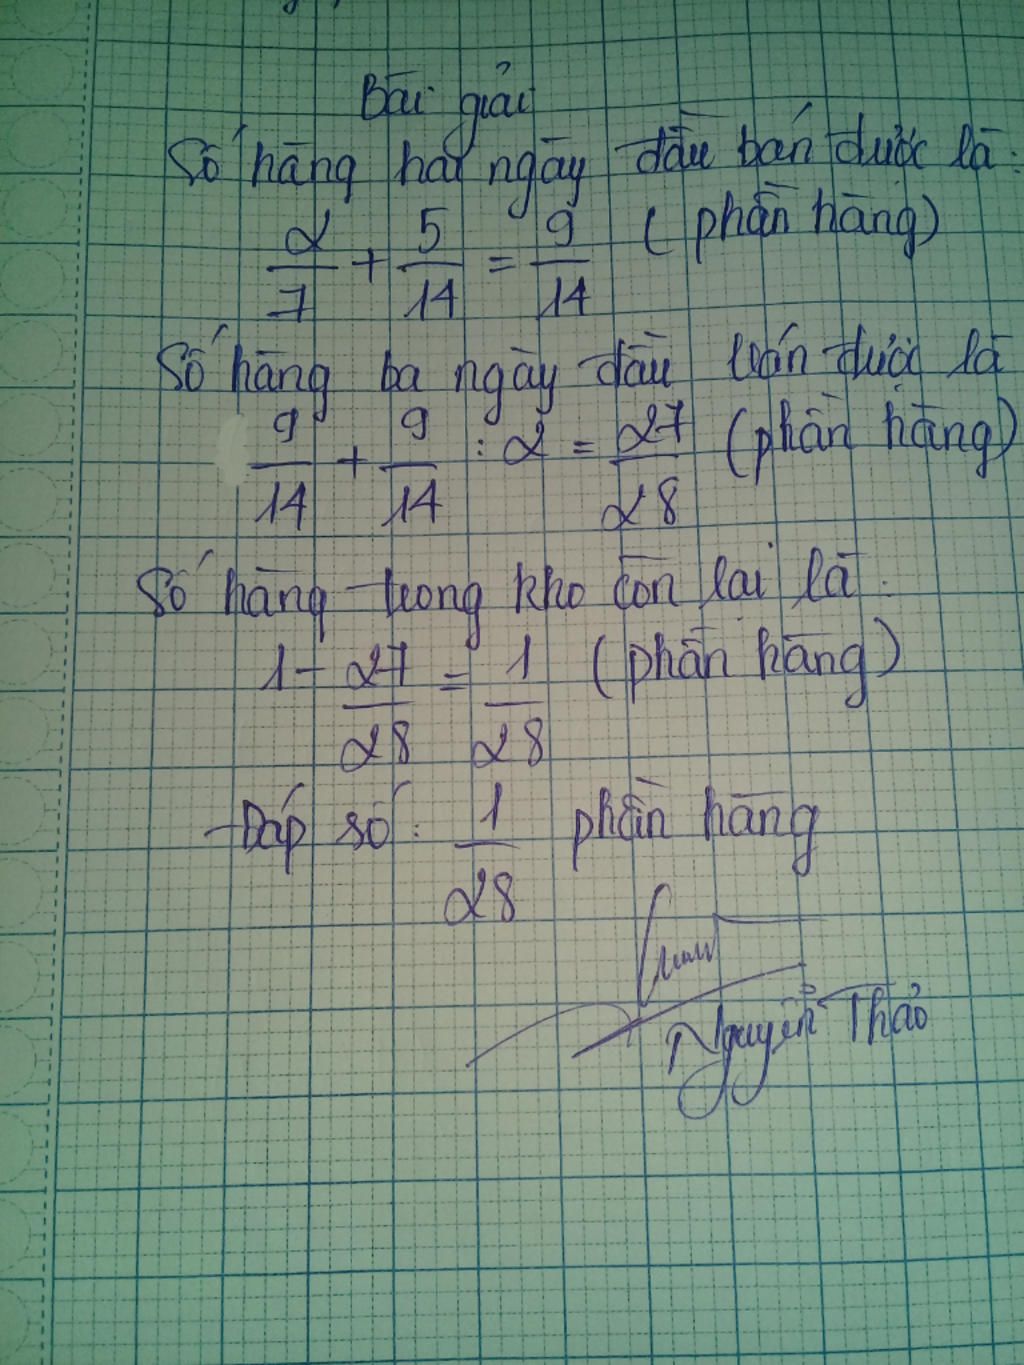 Bài giải
Số hàng hai ngày đầu bán được là:
2/7 + 5/14 = 9/14 (phần hàng)
Số hàng ba ngày đầu bán được là
9/14 + 9/14 : 2 = 27/28 (phần hàng)
Số hàng trong kho còn lại là:
1 - 27/28 = 1/28 (phần hàng)
Đáp số: 1/28 phần hàng
Nguyễn Thảo